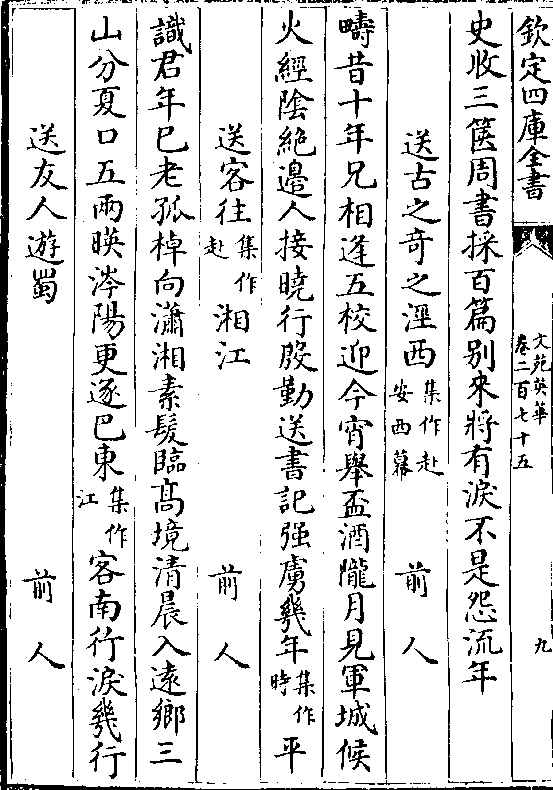 欽定四庫全書
文苑英華
卷二百七十五
九
史收三篋周書採百篇别來將有淚不是怨流年
送古之奇之涇西集作赴安西幕 前人
疇昔十年兄相逢五校迎今宵舉盃酒隴月見軍城候
火經隂絶邉人接曉行殷勤送書記强虜幾年集作時平
送客往集作赴湘江 前人
識君年已老孤棹向瀟湘素髮臨髙境清晨入逺鄉三
山分夏口五兩映涔陽更逐巴東集作江客南行淚幾行
送友人遊蜀 前人